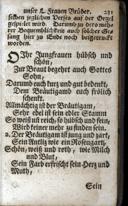 unser L. Frauen Brüder. 221
selben zerlichen Verses auf der Orgel
gespielt wird. Darumb zu des mehrer
Bequemblichkeit auch solcher Ge-
sang hier zu Ende noch beygetruckt
worden.
O Ihr Jungfrauen hübsch und
schön,
Zur Braut begehrt auch Gottes
Sohn,
Darumb euch kurtz und gut bereit,
Dem Bräutigamb euch frölich
schenckt.
Allmächtig ist der Bräutigam,
Sehr edel ist sein
So weiß und reich, so hübsch und
Wird keiner mehr zu finden sein.
2. Der Bräutigam ist jung und zart,
Sein Antlitz wie ein Rosengart,
Schön, weiß und roth, wie Milch
und Blut,
Sein Farb erfrischt sein Hertz und
Muth,
Sein